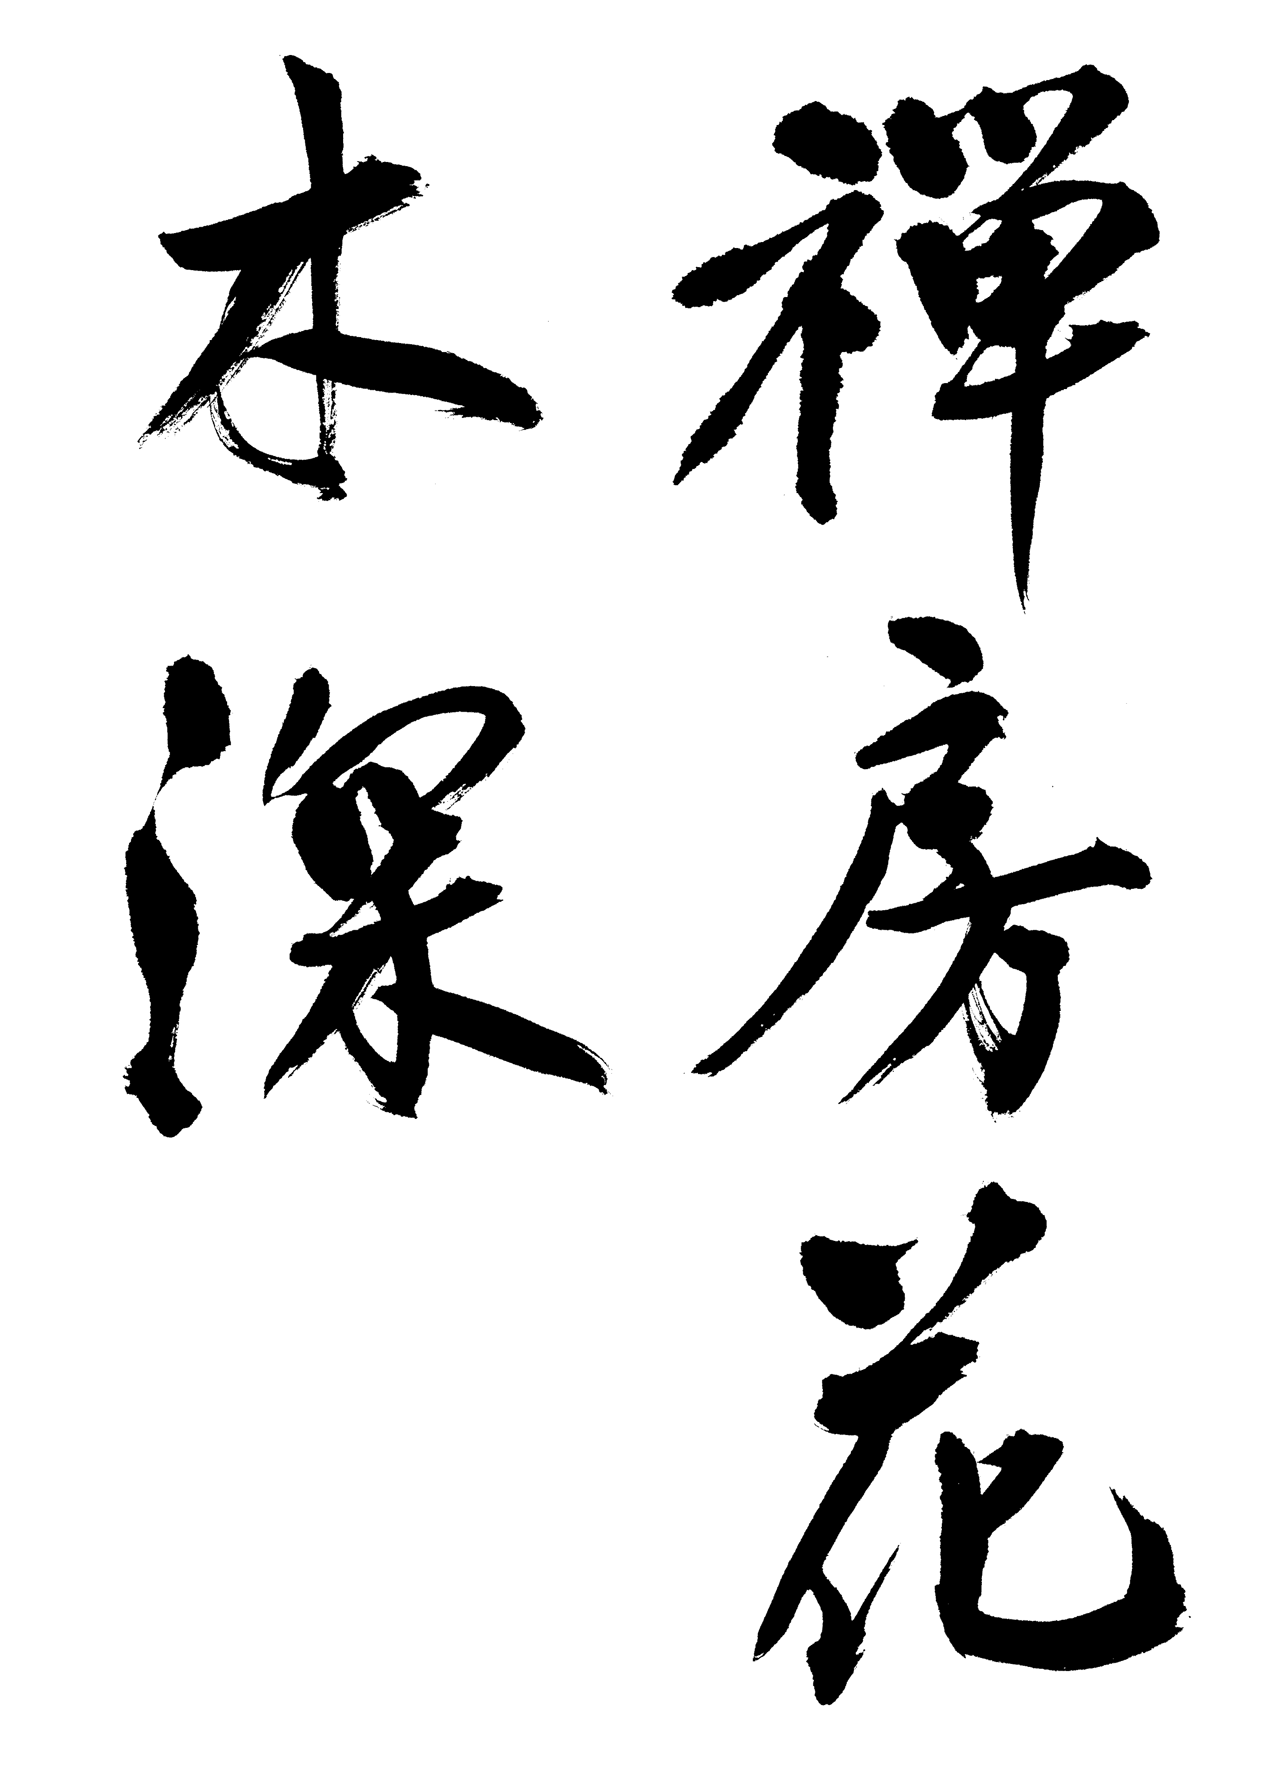 禅房花
木深